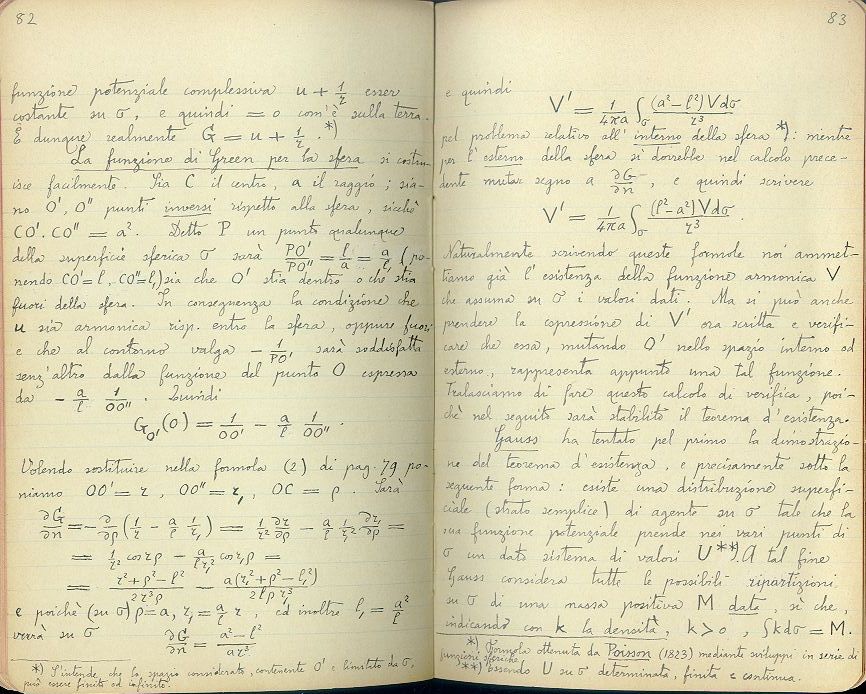 82
funzione potenziale complessiva u + 1/r esser
costante su σ, e quindi = 0 com'è sulla terra.
È dunque realmente G = u + 1/r. *)
La funzione di Green per la sfera si costru-
isce facilmente. Sia C il centro, a il raggio; sia-
no O', O'' punti inversi rispetto alla sfera, sicchè
CO'. CO'' = a². Detto P un punto qualunque
della superficie sferica σ sarà PO'/PO'' = l/a = a/l₁ (po-
nendo CO'=l, CO''=l₁) sia che O' stia dentro o che stia
fuori della sfera. In conseguenza la condizione che
u sia armonica risp. entro la sfera, oppure fuori
e che al contorno valga - 1/PO' sarà soddisfatta
senz'altro dalla funzione del punto O espressa
da - a/l 1/OO''. Quindi
G_O'(O) = 1/OO' - a/l 1/OO''.
Volendo sostituire nella formola (2) di pag. 79 po-
niamo OO' = r, OO'' = r₁, OC = ρ. Sarà
∂G/∂n = - ∂/∂ρ (1/r - a/l 1/r₁) = 1/r² ∂r/∂ρ - a/l 1/r₁² ∂r₁/∂ρ =
= 1/r² cos rρ - a/lr₁² cos r₁ρ =
= r²+ρ²-l²/2r³ρ - a(r₁²+ρ²-l₁²)/2lρr₁³
e poichè (su σ) ρ=a, r₁= a/l r, ed inoltre l₁ = a²/l
verrà su σ ∂G/∂n = a²-l²/ar³
*) S'intende che lo spazio considerato, contenente O' e limitato da σ,
può essere finito od infinito.
83
e quindi
V' = 1/4πa ∫σ (a²-l²)Vdσ/r³
pel problema relativo all'interno della sfera *): mentre
per l'esterno della sfera si dovrebbe nel calcolo prece-
dente mutar segno a ∂G/∂n, e quindi scrivere
V' = 1/4πa ∫σ (l²-a²)Vdσ/r³.
Naturalmente scrivendo queste formole noi ammet-
tiamo già l'esistenza della funzione armonica V
che assuma su σ i valori dati. Ma si può anche
prendere la espressione di V' ora scritta e verifi-
care che essa, mutando O' nello spazio interno od
esterno, rappresenta appunto una tal funzione.
Tralasciamo di fare questo calcolo di verifica, poi-
chè nel seguito sarà stabilito il teorema d'esistenza.
Gauss ha tentato pel primo la dimostrazio-
ne del teorema d'esistenza, e precisamente sotto la
seguente forma: esiste una distribuzione superfi-
ciale (strato semplice) di agente su σ tale che la
sua funzione potenziale prende nei vari punti di
σ un dato sistema di valori U **). A tal fine
Gauss considera tutte le possibili ripartizioni
su σ di una massa positiva M data, sì che,
indicando con k la densità, k>0, ∫kdσ = M.
*) Formola ottenuta da Poisson (1823) mediante sviluppi in serie di
funzioni sferiche.
**) essendo U su σ determinata, finita e continua.